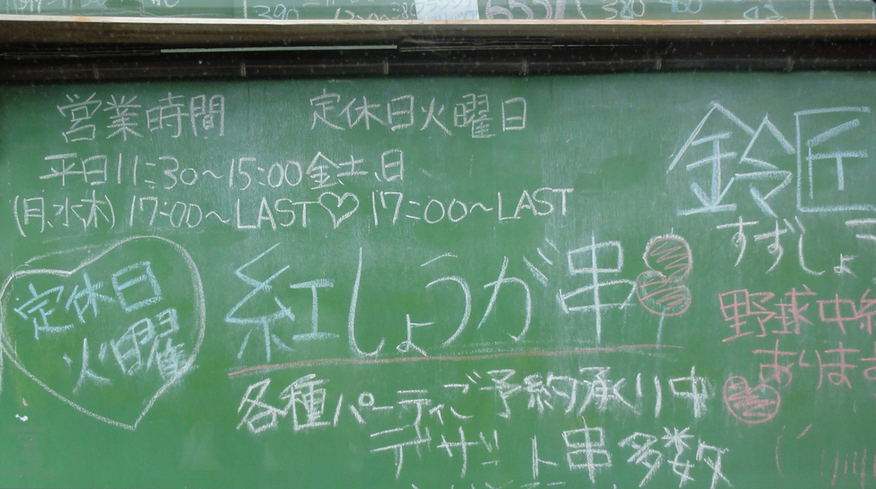 営業時間 定休日火曜日
平日11:30～15:00金土、日
(月、水木) 17:00～LAST♡17:00～LAST
鈴匠
すずしょ
定休日
火曜
紅しょうが串
野球中
あります
各種パーティご予約承り中
デザート串多数